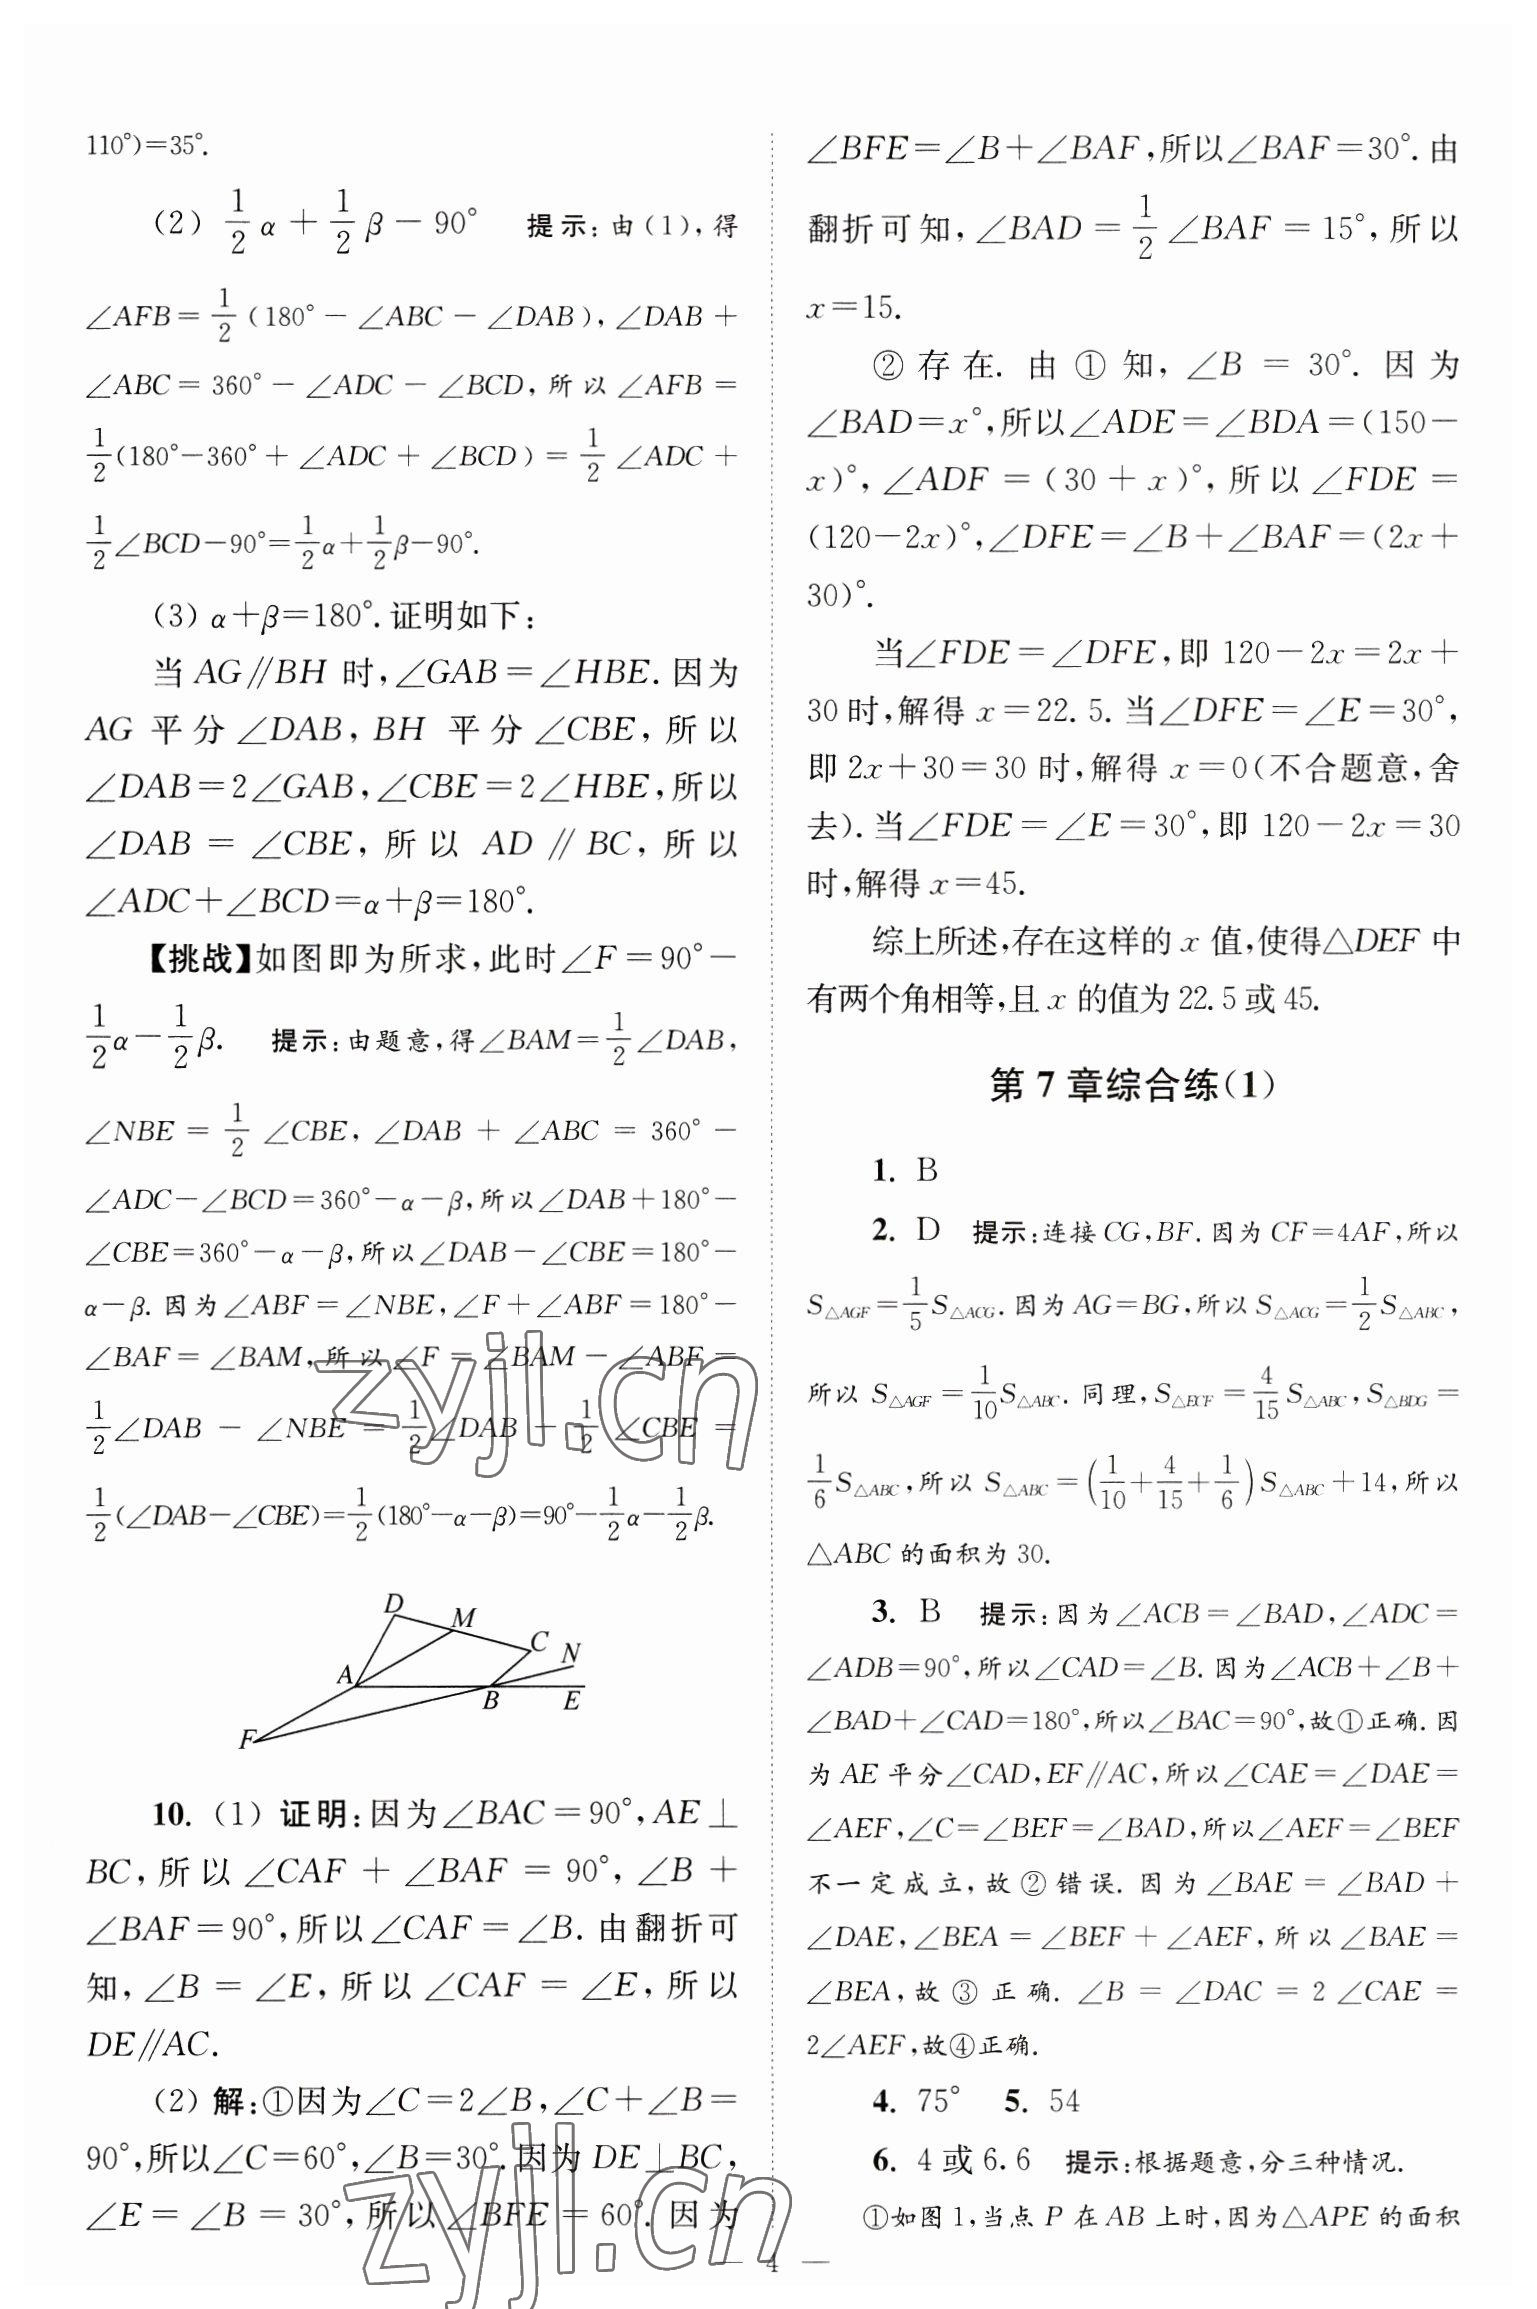 110°)=35°.
(2) 1/2 α + 1/2 β − 90° 提示:由(1),得
∠AFB = 1/2 (180° − ∠ABC − ∠DAB), ∠DAB +
∠ABC = 360° − ∠ADC − ∠BCD, 所以 ∠AFB =
1/2 (180°−360°+ ∠ADC + ∠BCD) = 1/2 ∠ADC +
1/2 ∠BCD−90°= 1/2 α+ 1/2 β−90°.
(3) α+β=180°.证明如下:
当 AG∥BH 时,∠GAB=∠HBE.因为
AG 平分∠DAB, BH 平分∠CBE, 所以
∠DAB=2∠GAB,∠CBE=2∠HBE,所以
∠DAB = ∠CBE, 所以 AD ∥ BC, 所以
∠ADC+∠BCD=α+β=180°.
【挑战】如图即为所求,此时∠F=90°−
1/2 α− 1/2 β. 提示:由题意,得∠BAM= 1/2 ∠DAB,
∠NBE = 1/2 ∠CBE, ∠DAB + ∠ABC = 360° −
∠ADC−∠BCD=360°−α−β,所以∠DAB+180°−
∠CBE=360°−α−β,所以∠DAB−∠CBE=180°−
α−β. 因为∠ABF=∠NBE,∠F+∠ABF=180°−
∠BAF= ∠BAM, 所以 ∠F = ∠BAM − ∠ABF =
1/2 ∠DAB − ∠NBE = 1/2 ∠DAB − 1/2 ∠CBE =
1/2 (∠DAB−∠CBE)= 1/2 (180°−α−β)=90°− 1/2 α− 1/2 β.
D
M
C
N
A
B
E
F
10. (1) 证明:因为∠BAC=90°,AE⊥
BC,所以∠CAF + ∠BAF = 90°,∠B +
∠BAF=90°,所以∠CAF=∠B. 由翻折可
知, ∠B = ∠E, 所以 ∠CAF = ∠E, 所以
DE∥AC.
(2) 解:①因为∠C=2∠B,∠C+∠B=
90°,所以∠C=60°,∠B=30°.因为DE⊥BC,
∠E = ∠B = 30°, 所以 ∠BFE = 60°. 因为
∠BFE=∠B+∠BAF,所以∠BAF=30°.由
翻折可知, ∠BAD = 1/2 ∠BAF = 15°, 所以
x=15.
② 存在. 由 ① 知, ∠B = 30°. 因为
∠BAD=x°,所以∠ADE=∠BDA=(150−
x)°, ∠ADF = (30 + x)°, 所以 ∠FDE =
(120−2x)°,∠DFE=∠B+∠BAF=(2x+
30)°.
当∠FDE=∠DFE,即 120−2x=2x+
30时,解得 x=22.5.当∠DFE=∠E=30°,
即 2x+30=30 时,解得 x=0(不合题意,舍
去).当∠FDE=∠E=30°,即 120−2x=30
时,解得 x=45.
综上所述,存在这样的 x 值,使得△DEF 中
有两个角相等,且 x 的值为 22.5或45.
第 7 章综合练(1)
1. B
2. D 提示:连接CG,BF.因为CF=4AF,所以
S△AGF= 1/5 S△ACG. 因为AG=BG,所以S△ACG= 1/2 S△ABC,
所以 S△AGF= 1/10 S△ABC. 同理, S△ECF= 4/15 S△ABC, S△BDG=
1/6 S△ABC,所以 S△ABC= ( 1/10 + 4/15 + 1/6 ) S△ABC+14,所以
△ABC 的面积为 30.
3. B 提示:因为∠ACB=∠BAD,∠ADC=
∠ADB=90°,所以∠CAD=∠B. 因为∠ACB+∠B+
∠BAD+∠CAD=180°,所以∠BAC=90°,故①正确.因
为 AE 平分∠CAD,EF∥AC,所以∠CAE=∠DAE=
∠AEF,∠C=∠BEF=∠BAD,所以∠AEF=∠BEF
不一定成立,故②错误. 因为∠BAE = ∠BAD +
∠DAE, ∠BEA = ∠BEF + ∠AEF, 所以 ∠BAE =
∠BEA, 故 ③ 正确. ∠B = ∠DAC = 2 ∠CAE =
2∠AEF,故④正确.
4. 75° 5. 54
6. 4或6.6 提示:根据题意,分三种情况.
①如图1,当点 P 在 AB 上时,因为△APE 的面积
— 4 —
zyjl.cn
zyjl.cn